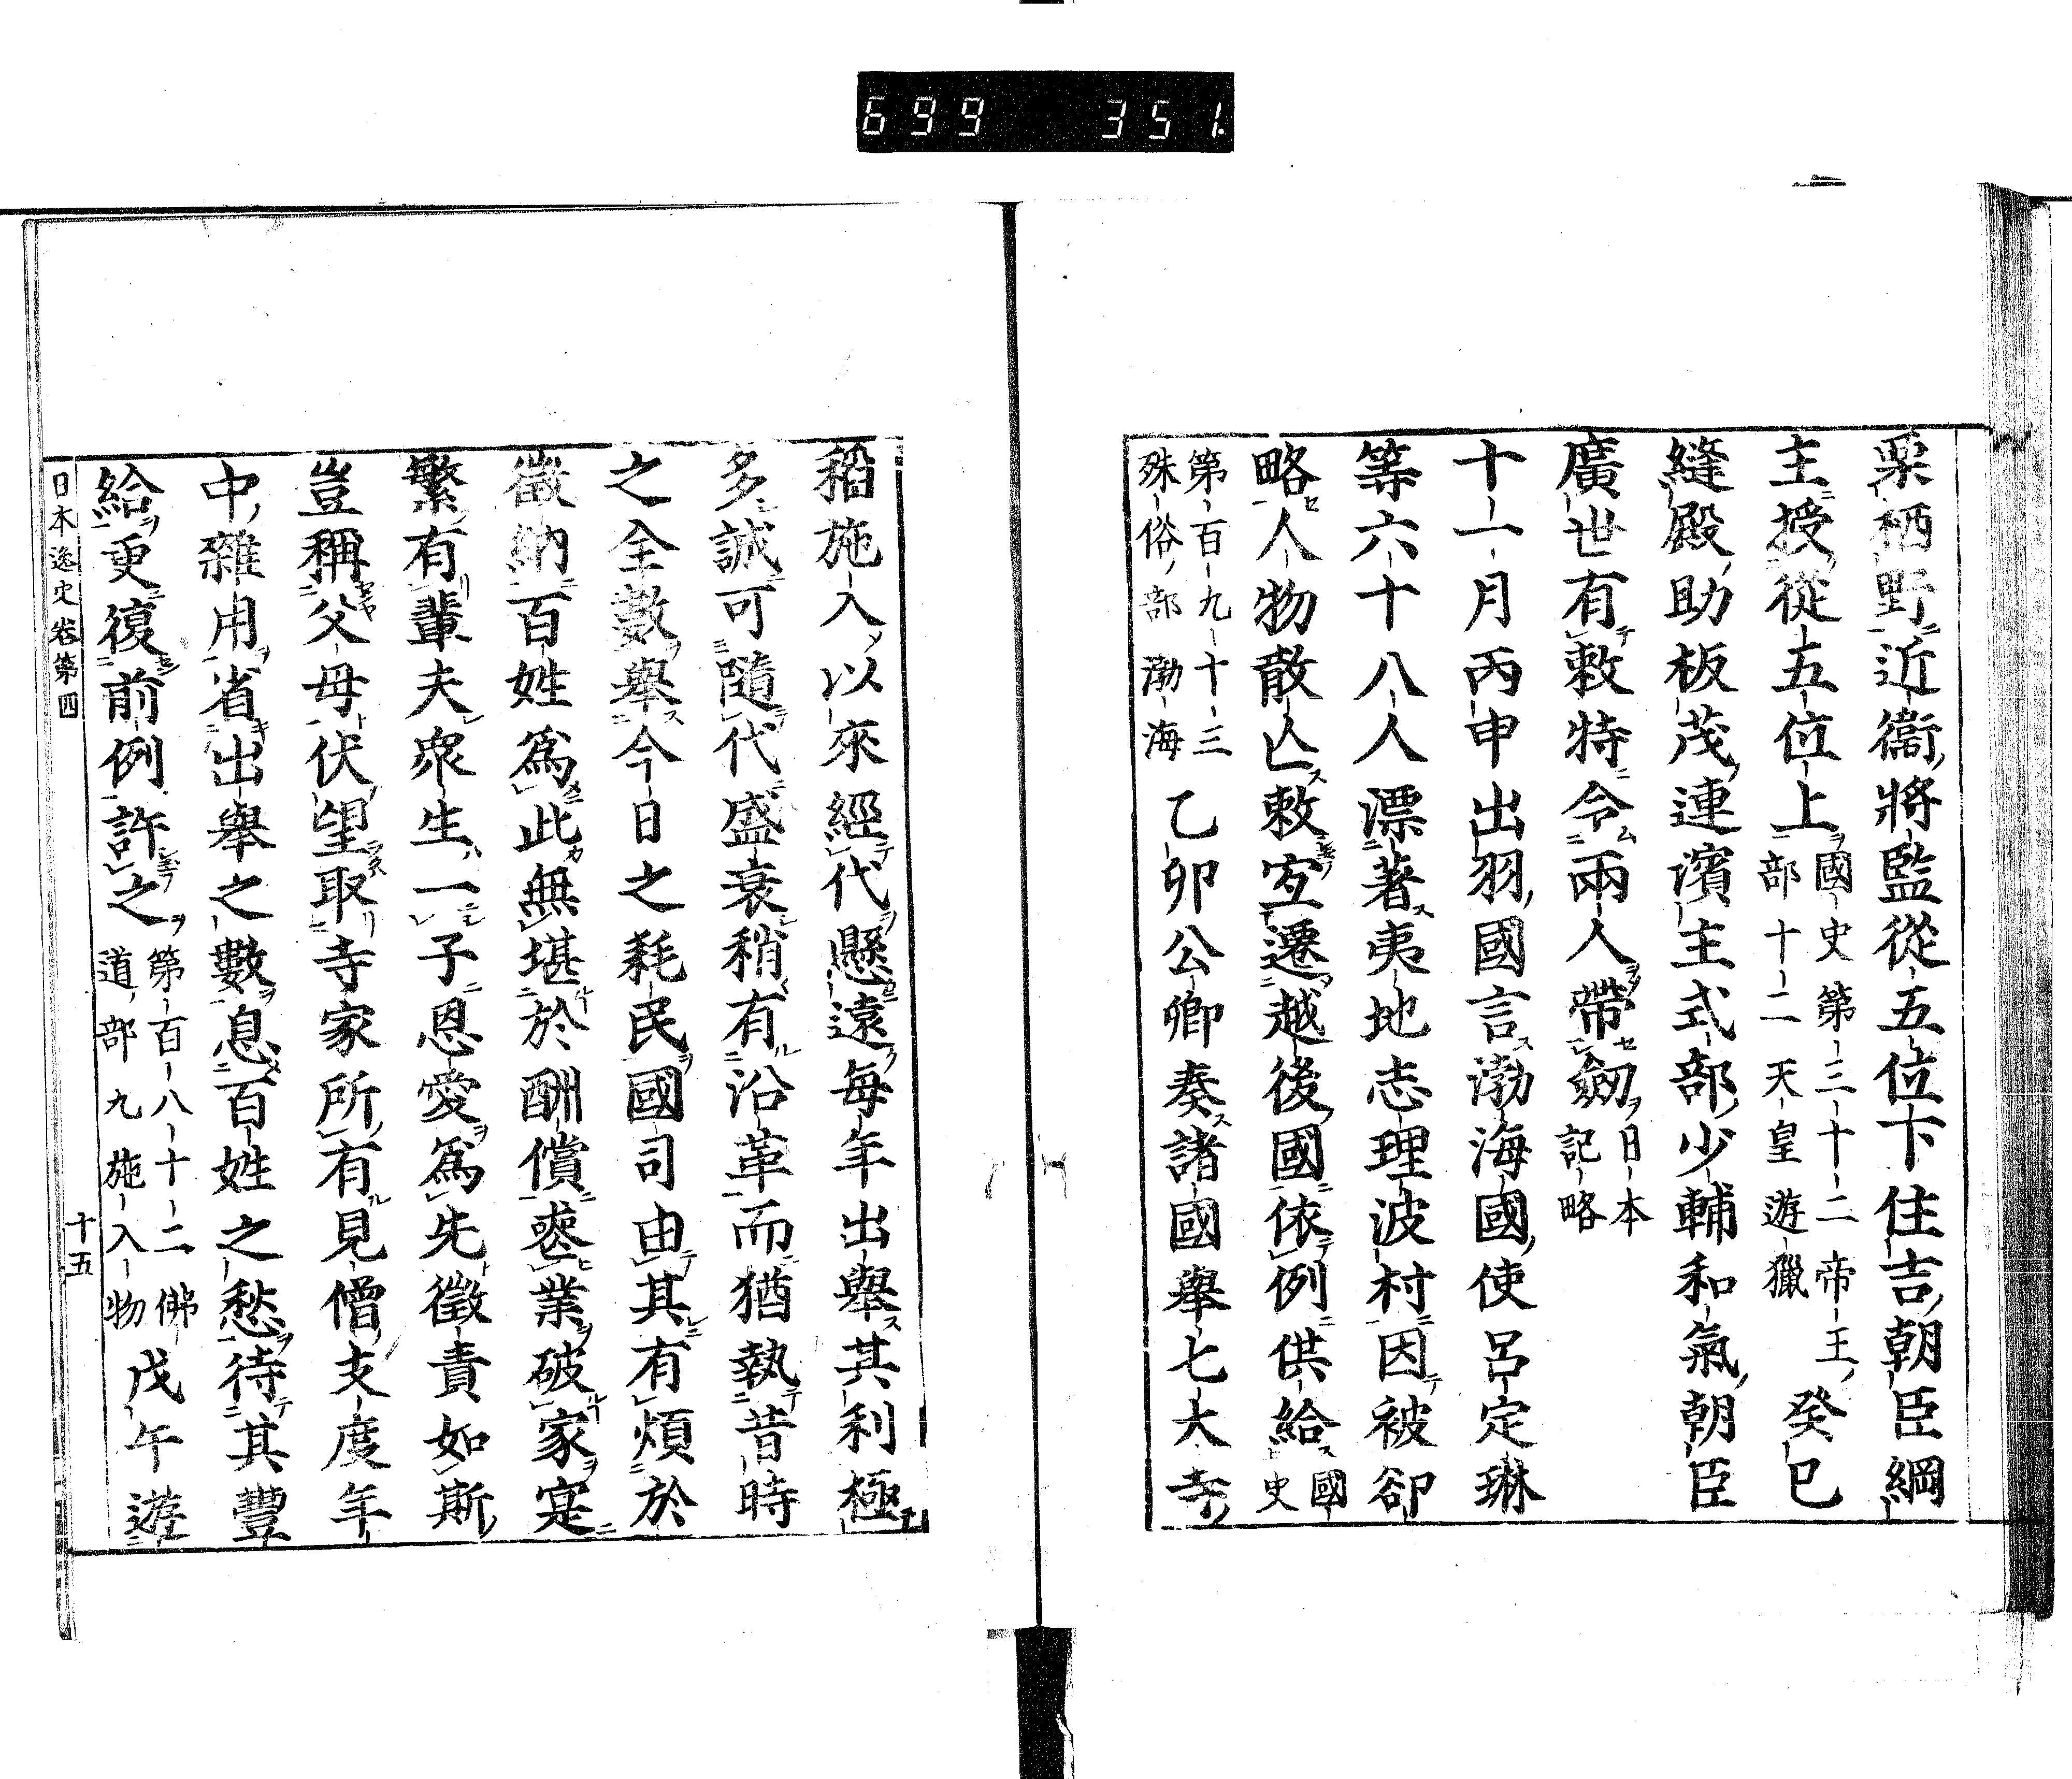 699 351
栗栖野近衞將監從五位下住吉朝臣綱
主授從五位上國史第三十二帝王部十二天皇遊獵癸巳
縫殿助板茂連濱主式部少輔和氣朝臣
廣世有敕特令兩人帶劒日本記略
十一月丙申出羽國言渤海國使呂定琳
等六十八人漂著夷地志理波村因被卻
略人物散亾敕宜遷越後國依例供給國史
第百九十三殊俗部渤海乙卯公卿奏諸國舉七大寺
稻施入以來經代懸遠每年出舉其利極
多誠可隨代盛衰稍有沿革而猶執昔時
之全數舉今日之耗民國司由其有煩於
徵納百姓爲此無堪於酬償惑業破家寔
繁有輩夫衆生一子恩愛爲先徵責如斯
豈稱父母伏望取寺家所有見僧支度年
中雜用省出舉之數息百姓之愁待其豐
給更復前例許之第百八十二佛道部九施入物戊午遊
日本逸史卷第四
十五